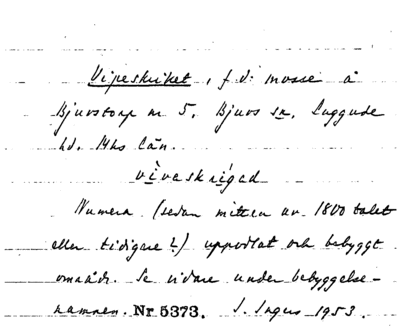 Vipeskriket, f.d. mosse å
Bjuvstorp nr 5. Bjuvs sn. Luggude
hd. Mhs län.
vìvaskrígad
Numera (sedan mitten av 1800 talet
eller tidigare?) uppodlat och bebyggt
område. Se vidare under bebyggelse-
namnen. Nr 5373. S. Ingers 1953.